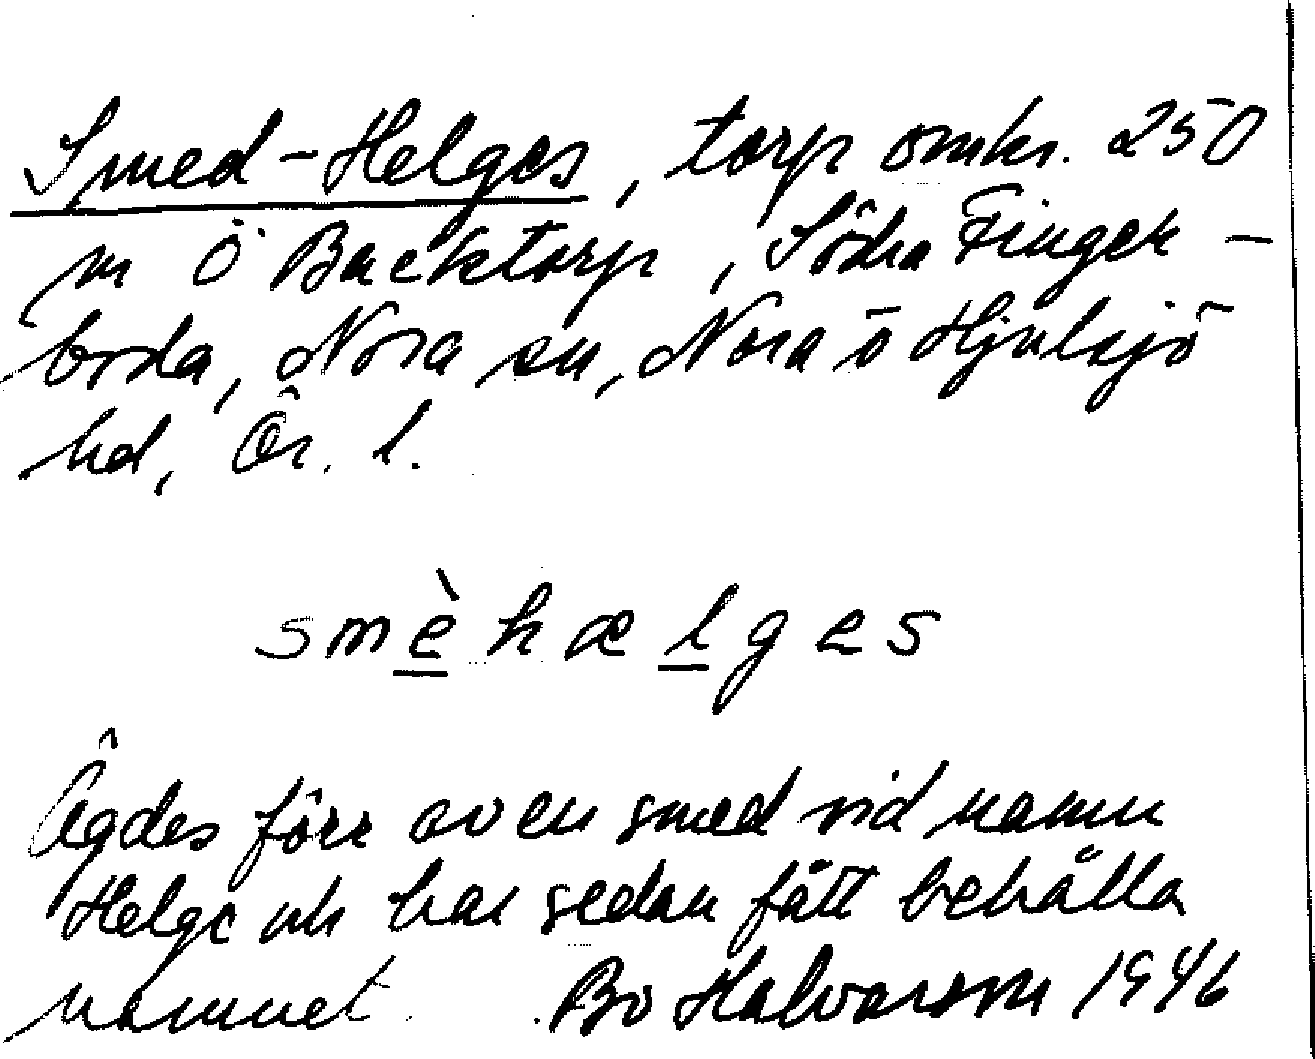 Smed-Helges, torp omkr. 250
m Ö Backtorp, Södra Finger-
boda, Nora sn, Nora o Hjulsjö
hd, Ör. l.
smèhælges
Ägdes förr av en smed vid namn
Helge och har sedan fått behålla
namnet. Bo Halvarson 1946